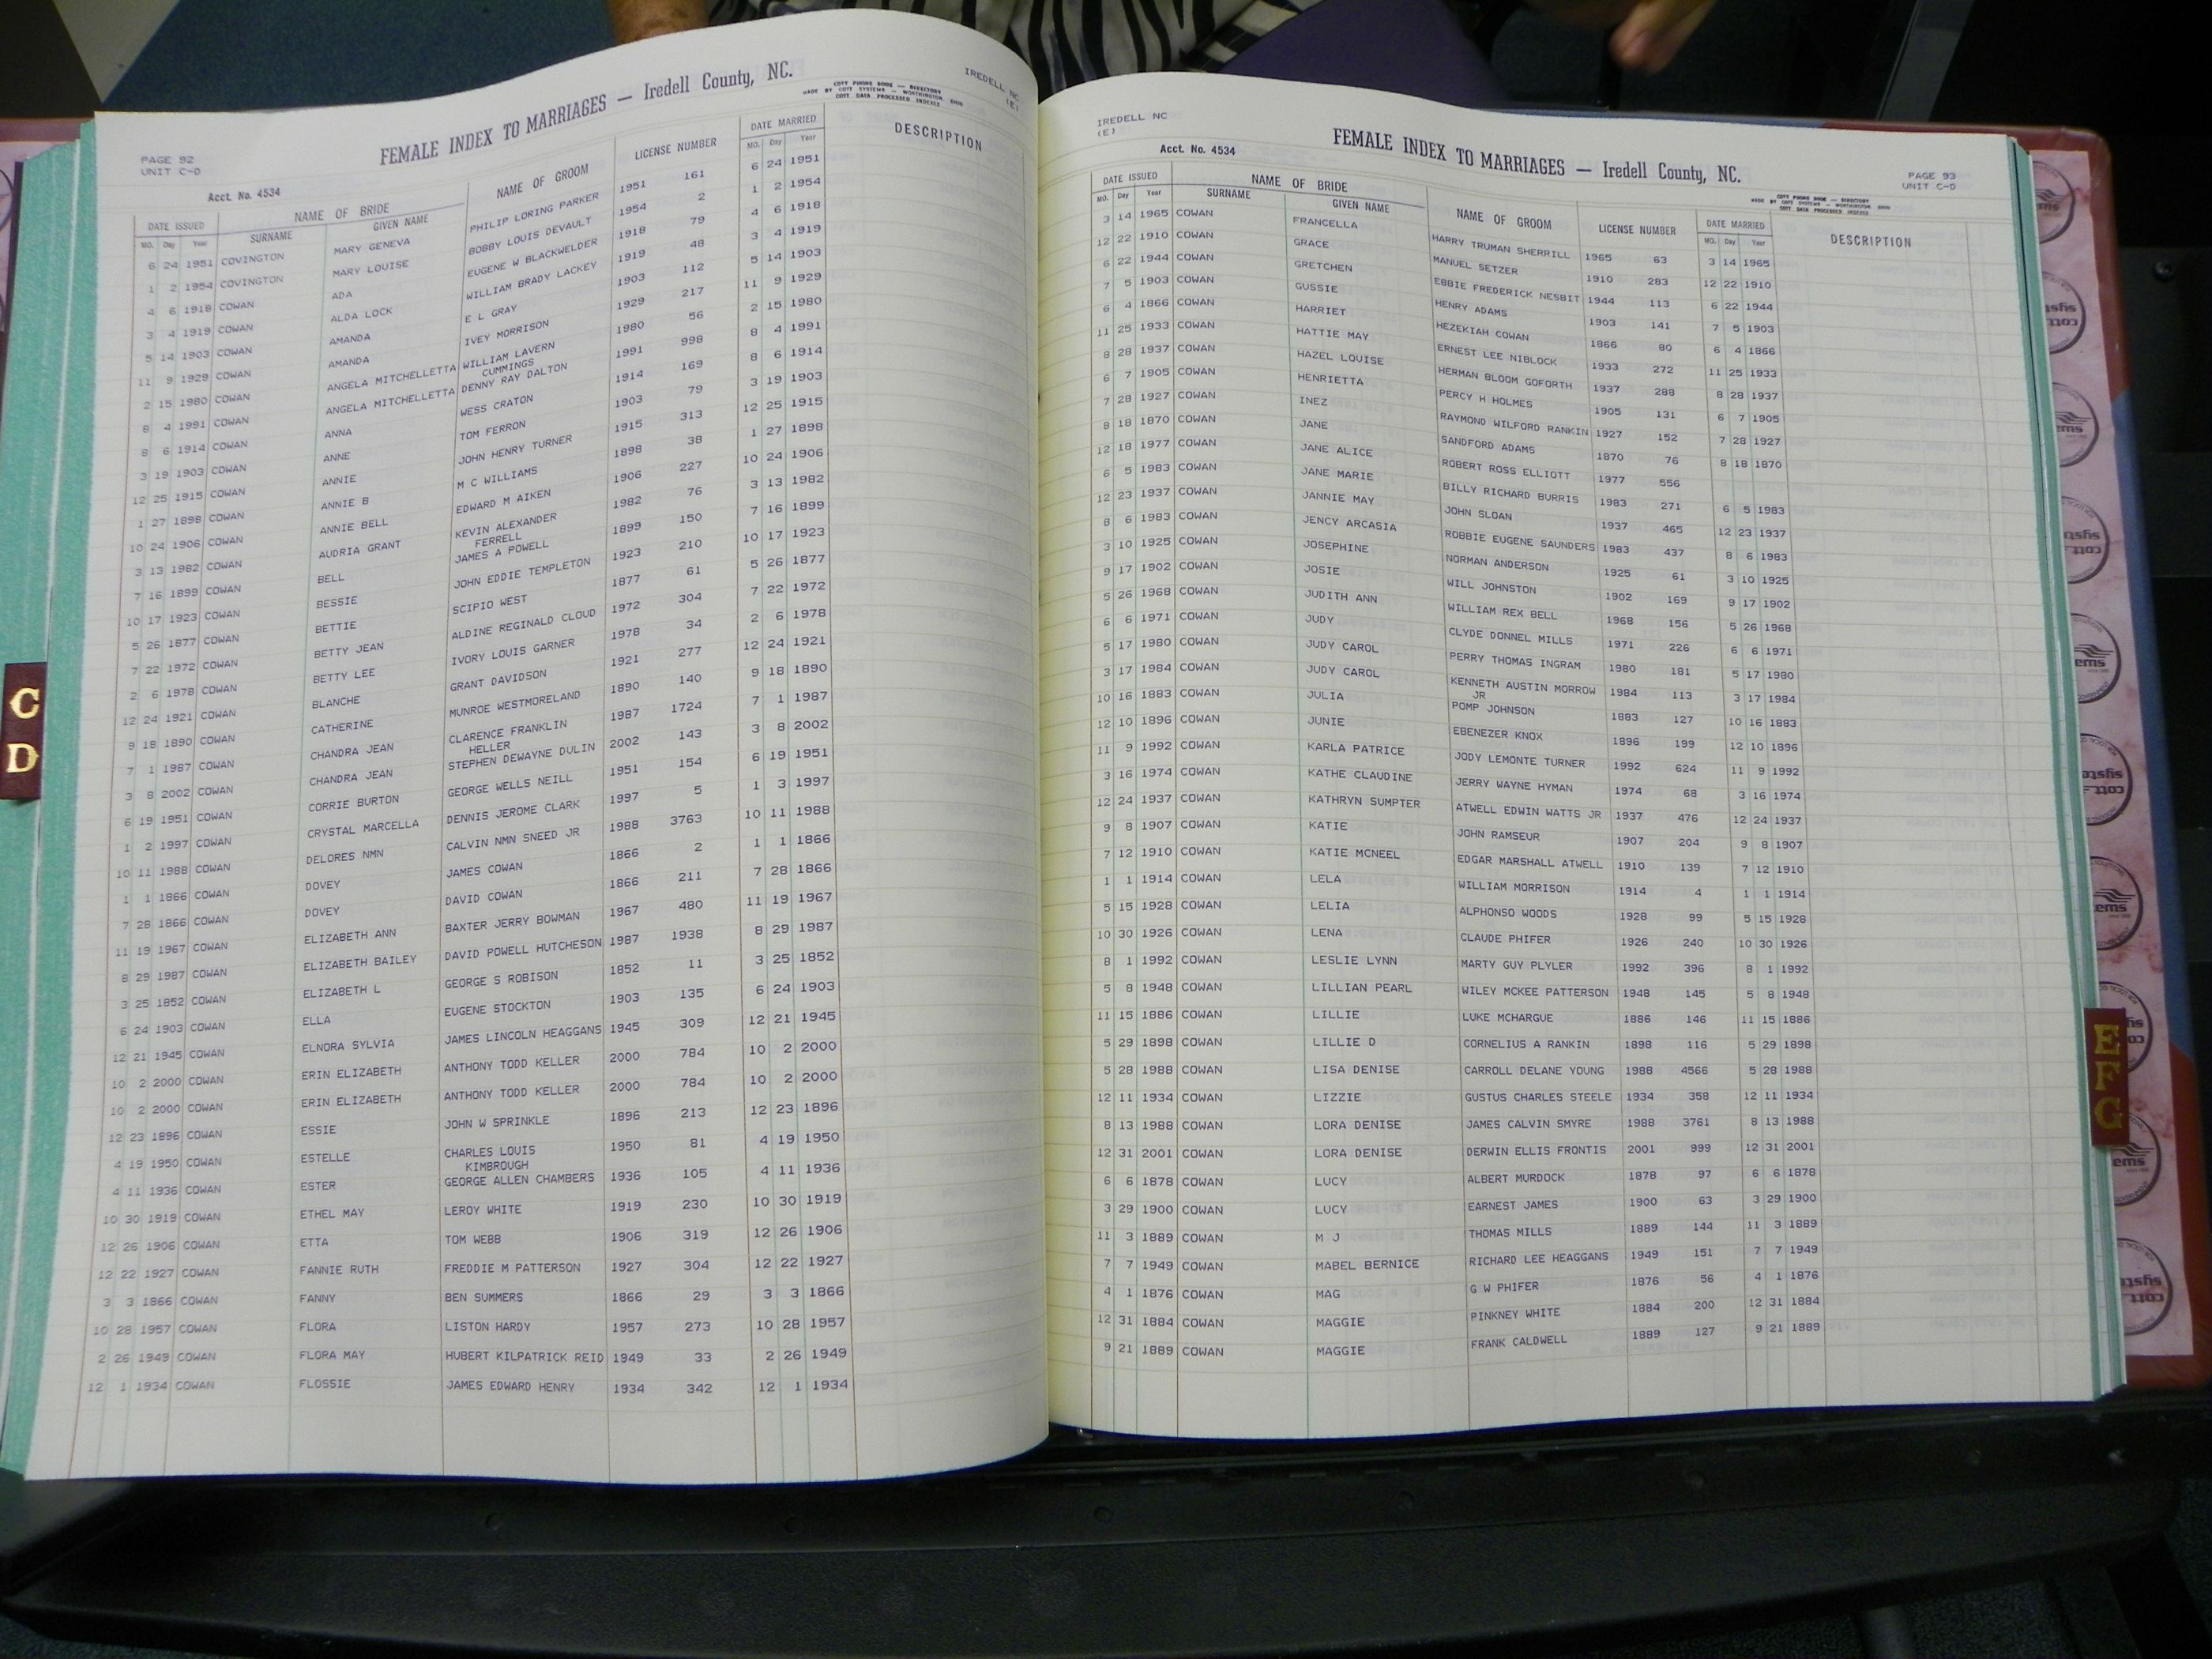 PAGE 92
UNIT C-D
Acct. No. 4534
FEMALE INDEX TO MARRIAGES — Iredell County, NC.
COTT PHONE BOOK — DIRECTORY
MADE BY COTT SYSTEMS — WORTHINGTON, OHIO
COTT DATA PROCESSED INDEXES
IREDELL NC
(E)
DATE ISSUED NAME OF BRIDE NAME OF GROOM LICENSE NUMBER DATE MARRIED DESCRIPTION
MO. Day Year SURNAME GIVEN NAME MO. Day Year
6 24 1951 COVINGTON MARY GENEVA PHILIP LORING PARKER 1951 161 6 24 1951
1 2 1954 COVINGTON MARY LOUISE BOBBY LOUIS DEVAULT 1954 2 1 2 1954
4 6 1918 COWAN ADA EUGENE W BLACKWELDER 1918 79 4 6 1918
3 4 1919 COWAN ALDA LOCK WILLIAM BRADY LACKEY 1919 48 3 4 1919
5 14 1903 COWAN AMANDA E L GRAY 1903 112 5 14 1903
11 9 1929 COWAN AMANDA IVEY MORRISON 1929 217 11 9 1929
2 15 1980 COWAN ANGELA MITCHELLETTA WILLIAM LAVERN 1980 56 2 15 1980
CUMMINGS
8 4 1991 COWAN ANGELA MITCHELLETTA DENNY RAY DALTON 1991 998 8 4 1991
8 6 1914 COWAN ANNA WESS CRATON 1914 169 8 6 1914
3 19 1903 COWAN ANNE TOM FERRON 1903 79 3 19 1903
12 25 1915 COWAN ANNIE JOHN HENRY TURNER 1915 313 12 25 1915
1 27 1898 COWAN ANNIE B M C WILLIAMS 1898 38 1 27 1898
10 24 1906 COWAN ANNIE BELL EDWARD M AIKEN 1906 227 10 24 1906
3 13 1982 COWAN AUDRIA GRANT KEVIN ALEXANDER 1982 76 3 13 1982
FERRELL
7 16 1899 COWAN BELL JAMES A POWELL 1899 150 7 16 1899
10 17 1923 COWAN BESSIE JOHN EDDIE TEMPLETON 1923 210 10 17 1923
5 26 1877 COWAN BETTIE SCIPIO WEST 1877 61 5 26 1877
7 22 1972 COWAN BETTY JEAN ALDINE REGINALD CLOUD 1972 304 7 22 1972
2 6 1978 COWAN BETTY LEE IVORY LOUIS GARNER 1978 34 2 6 1978
12 24 1921 COWAN BLANCHE GRANT DAVIDSON 1921 277 12 24 1921
9 18 1890 COWAN CATHERINE MUNROE WESTMORELAND 1890 140 9 18 1890
7 1 1987 COWAN CHANDRA JEAN CLARENCE FRANKLIN 1987 1724 7 1 1987
HELLER
3 8 2002 COWAN CHANDRA JEAN STEPHEN DEWAYNE DULIN 2002 143 3 8 2002
6 19 1951 COWAN CORRIE BURTON GEORGE WELLS NEILL 1951 154 6 19 1951
1 2 1997 COWAN CRYSTAL MARCELLA DENNIS JEROME CLARK 1997 5 1 3 1997
10 11 1988 COWAN DELORES NMN CALVIN NMN SNEED JR 1988 3763 10 11 1988
1 1 1866 COWAN DOVEY JAMES COWAN 1866 2 1 1 1866
7 28 1866 COWAN DOVEY DAVID COWAN 1866 211 7 28 1866
11 19 1967 COWAN ELIZABETH ANN BAXTER JERRY BOWMAN 1967 480 11 19 1967
8 29 1987 COWAN ELIZABETH BAILEY DAVID POWELL HUTCHESON 1987 1938 8 29 1987
3 25 1852 COWAN ELIZABETH L GEORGE S ROBISON 1852 11 3 25 1852
6 24 1903 COWAN ELLA EUGENE STOCKTON 1903 135 6 24 1903
12 21 1945 COWAN ELNORA SYLVIA JAMES LINCOLN HEAGGANS 1945 309 12 21 1945
10 2 2000 COWAN ERIN ELIZABETH ANTHONY TODD KELLER 2000 784 10 2 2000
10 2 2000 COWAN ERIN ELIZABETH ANTHONY TODD KELLER 2000 784 10 2 2000
12 23 1896 COWAN ESSIE JOHN W SPRINKLE 1896 213 12 23 1896
4 19 1950 COWAN ESTELLE CHARLES LOUIS 1950 81 4 19 1950
KIMBROUGH
4 11 1936 COWAN ESTER GEORGE ALLEN CHAMBERS 1936 105 4 11 1936
10 30 1919 COWAN ETHEL MAY LEROY WHITE 1919 230 10 30 1919
12 26 1906 COWAN ETTA TOM WEBB 1906 319 12 26 1906
12 22 1927 COWAN FANNIE RUTH FREDDIE M PATTERSON 1927 304 12 22 1927
3 3 1866 COWAN FANNY BEN SUMMERS 1866 29 3 3 1866
10 28 1957 COWAN FLORA LISTON HARDY 1957 273 10 28 1957
2 26 1949 COWAN FLORA MAY HUBERT KILPATRICK REID 1949 33 2 26 1949
12 1 1934 COWAN FLOSSIE JAMES EDWARD HENRY 1934 342 12 1 1934
C
D
IREDELL NC
(E)
Acct. No. 4534
FEMALE INDEX TO MARRIAGES — Iredell County, NC.
PAGE 93
UNIT C-D
COTT PHONE BOOK — DIRECTORY
MADE BY COTT SYSTEMS — WORTHINGTON, OHIO
COTT DATA PROCESSED INDEXES
DATE ISSUED NAME OF BRIDE NAME OF GROOM LICENSE NUMBER DATE MARRIED DESCRIPTION
MO. Day Year SURNAME GIVEN NAME MO. Day Year
3 14 1965 COWAN FRANCELLA HARRY TRUMAN SHERRILL 1965 63 3 14 1965
12 22 1910 COWAN GRACE MANUEL SETZER 1910 283 12 22 1910
6 22 1944 COWAN GRETCHEN EBBIE FREDERICK NESBIT 1944 113 6 22 1944
7 5 1903 COWAN GUSSIE HENRY ADAMS 1903 141 7 5 1903
6 4 1866 COWAN HARRIET HEZEKIAH COWAN 1866 80 6 4 1866
11 25 1933 COWAN HATTIE MAY ERNEST LEE NIBLOCK 1933 272 11 25 1933
8 28 1937 COWAN HAZEL LOUISE HERMAN BLOOM GOFORTH 1937 288 8 28 1937
6 7 1905 COWAN HENRIETTA PERCY H HOLMES 1905 131 6 7 1905
7 28 1927 COWAN INEZ RAYMOND WILFORD RANKIN 1927 152 7 28 1927
8 18 1870 COWAN JANE SANDFORD ADAMS 1870 76 8 18 1870
12 18 1977 COWAN JANE ALICE ROBERT ROSS ELLIOTT 1977 556
6 5 1983 COWAN JANE MARIE BILLY RICHARD BURRIS 1983 271 6 5 1983
12 23 1937 COWAN JANNIE MAY JOHN SLOAN 1937 465 12 23 1937
8 6 1983 COWAN JENCY ARCASIA ROBBIE EUGENE SAUNDERS 1983 437 8 6 1983
3 10 1925 COWAN JOSEPHINE NORMAN ANDERSON 1925 61 3 10 1925
9 17 1902 COWAN JOSIE WILL JOHNSTON 1902 169 9 17 1902
5 26 1968 COWAN JUDITH ANN WILLIAM REX BELL 1968 156 5 26 1968
6 6 1971 COWAN JUDY CLYDE DONNEL MILLS 1971 226 6 6 1971
5 17 1980 COWAN JUDY CAROL PERRY THOMAS INGRAM 1980 181 5 17 1980
3 17 1984 COWAN JUDY CAROL KENNETH AUSTIN MORROW 1984 113 3 17 1984
JR
10 16 1883 COWAN JULIA POMP JOHNSON 1883 127 10 16 1883
12 10 1896 COWAN JUNIE EBENEZER KNOX 1896 199 12 10 1896
11 9 1992 COWAN KARLA PATRICE JODY LEMONTE TURNER 1992 624 11 9 1992
3 16 1974 COWAN KATHE CLAUDINE JERRY WAYNE HYMAN 1974 68 3 16 1974
12 24 1937 COWAN KATHRYN SUMPTER ATWELL EDWIN WATTS JR 1937 476 12 24 1937
9 8 1907 COWAN KATIE JOHN RAMSEUR 1907 204 9 8 1907
7 12 1910 COWAN KATIE MCNEEL EDGAR MARSHALL ATWELL 1910 139 7 12 1910
1 1 1914 COWAN LELA WILLIAM MORRISON 1914 4 1 1 1914
5 15 1928 COWAN LELIA ALPHONSO WOODS 1928 99 5 15 1928
10 30 1926 COWAN LENA CLAUDE PHIFER 1926 240 10 30 1926
8 1 1992 COWAN LESLIE LYNN MARTY GUY PLYLER 1992 396 8 1 1992
5 8 1948 COWAN LILLIAN PEARL WILEY MCKEE PATTERSON 1948 145 5 8 1948
11 15 1886 COWAN LILLIE LUKE MCHARGUE 1886 146 11 15 1886
5 29 1898 COWAN LILLIE D CORNELIUS A RANKIN 1898 116 5 29 1898
5 28 1988 COWAN LISA DENISE CARROLL DELANE YOUNG 1988 4566 5 28 1988
12 11 1934 COWAN LIZZIE GUSTUS CHARLES STEELE 1934 358 12 11 1934
8 13 1988 COWAN LORA DENISE JAMES CALVIN SMYRE 1988 3761 8 13 1988
12 31 2001 COWAN LORA DENISE DERWIN ELLIS FRONTIS 2001 999 12 31 2001
6 6 1878 COWAN LUCY ALBERT MURDOCK 1878 97 6 6 1878
3 29 1900 COWAN LUCY EARNEST JAMES 1900 63 3 29 1900
11 3 1889 COWAN M J THOMAS MILLS 1889 144 11 3 1889
7 7 1949 COWAN MABEL BERNICE RICHARD LEE HEAGGANS 1949 151 7 7 1949
4 1 1876 COWAN MAG G W PHIFER 1876 56 4 1 1876
12 31 1884 COWAN MAGGIE PINKNEY WHITE 1884 200 12 31 1884
9 21 1889 COWAN MAGGIE FRANK CALDWELL 1889 127 9 21 1889
E
F
G